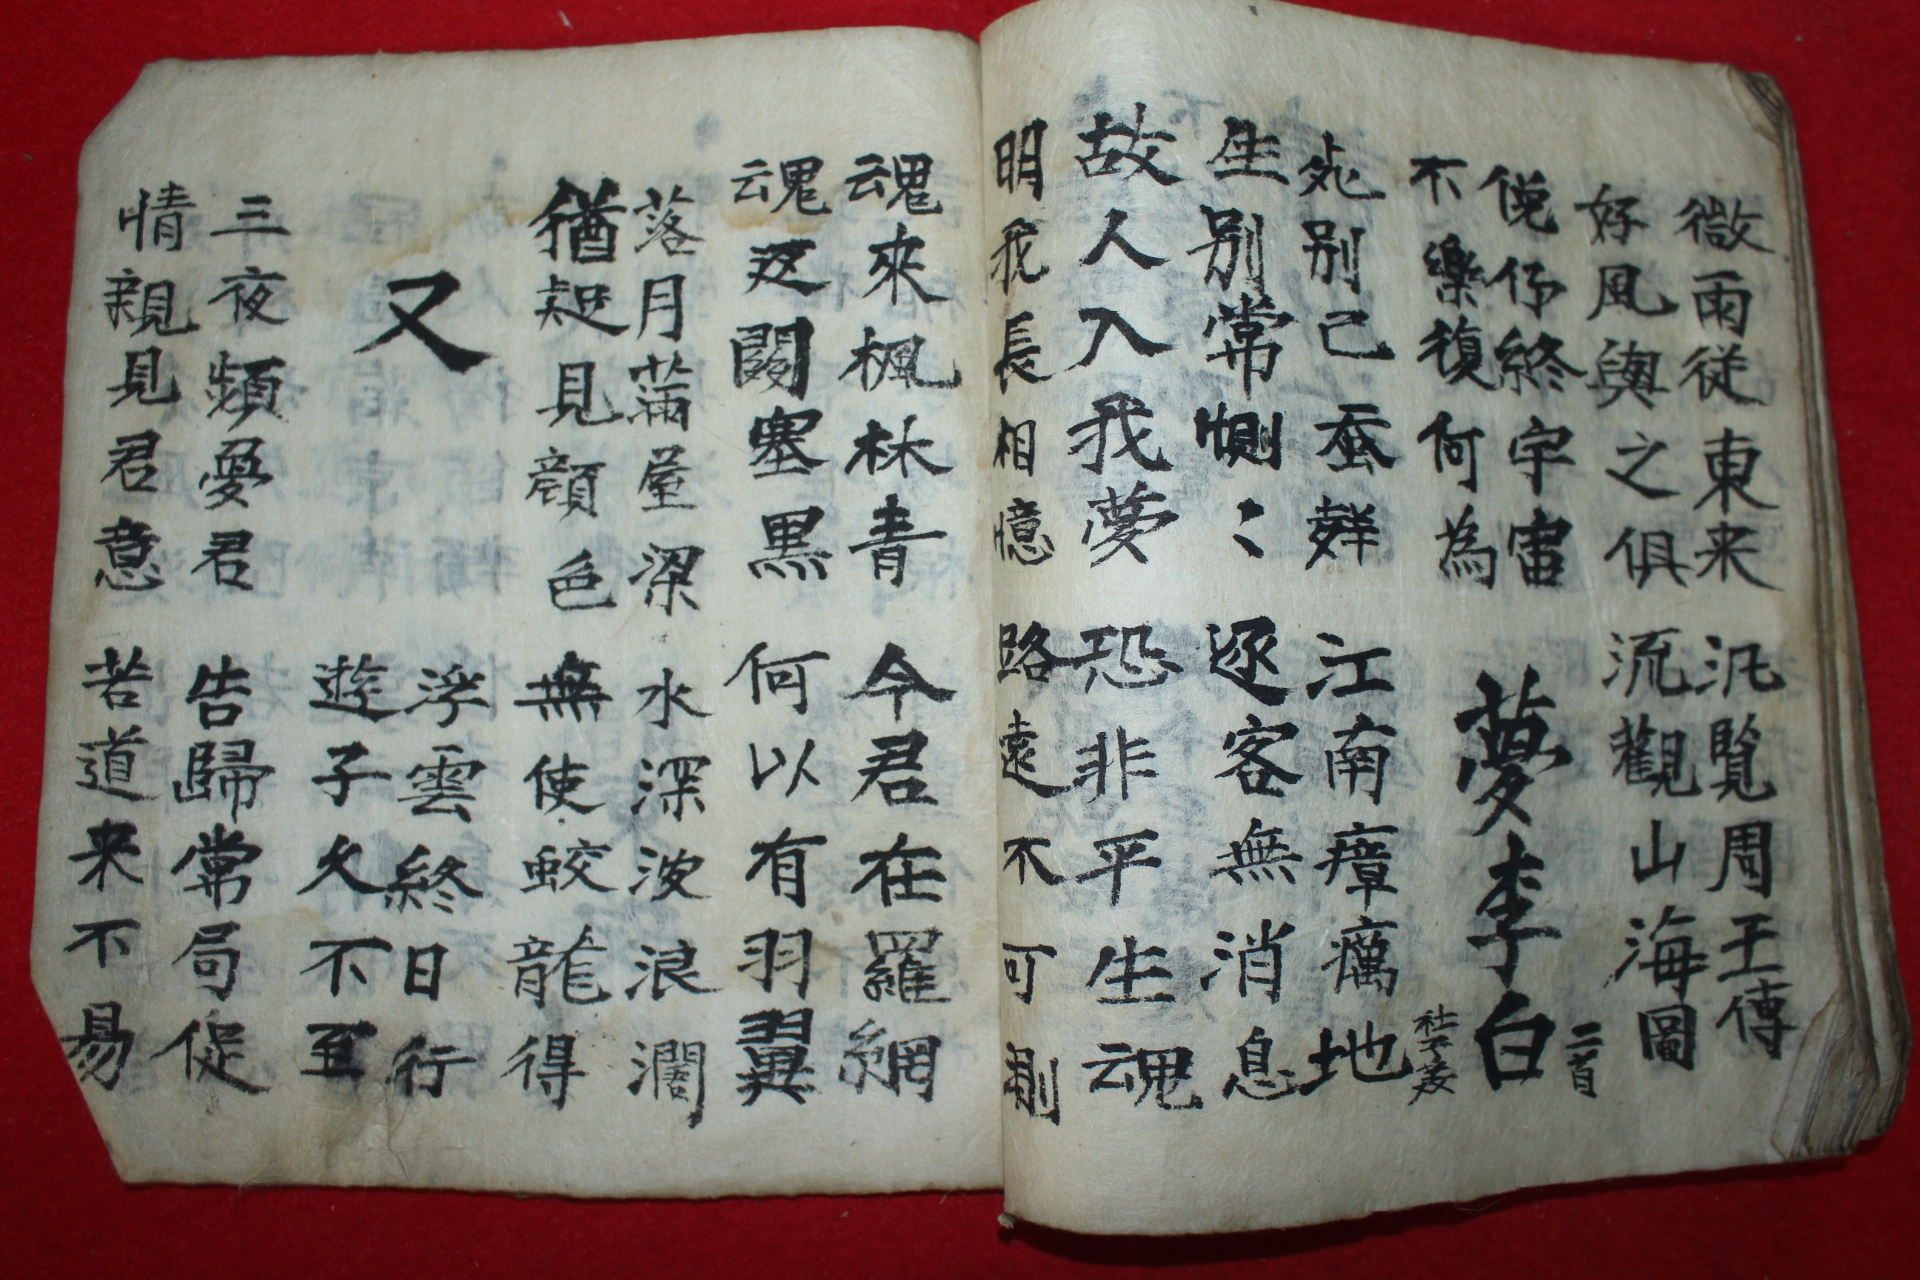 微雨従東来
好風與之俱
汎覧周王傳
流觀山海圖
俛仰終宇宙
不樂復何為
夢李白
二首
杜子美
死别已蚕辤
生别常惻〻
江南瘴癘地
逐客無消息
故人入我夢
明我長相憶
恐非平生魂
路遠不可測
魂來楓林青
魂返關塞黑
今君在羅網
何以有羽翼
落月滿屋梁
猶疑見顔色
水深波浪濶
無使蛟龍得
又
浮雲終日行
遊子久不至
三夜頻憂君
情親見君意
告歸常局促
苦道来不易